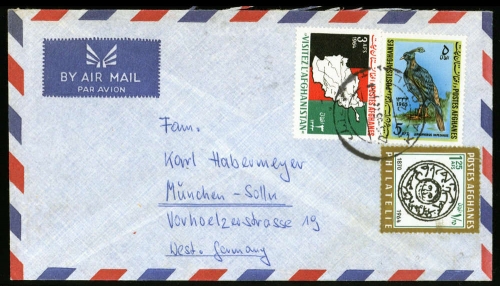 BY AIR MAIL
PAR AVION
3 AFS
1964
VISITEZ L'AFGHANISTAN
POSTES AFGHANES
POSTES AFGHANES
5
POSTES AFGHANES
1870
1964
1.25
PHILATELIE
Fam.
Karl Habermeyer
München-Solln
Vorhoelzerstrasse 19
West Germany